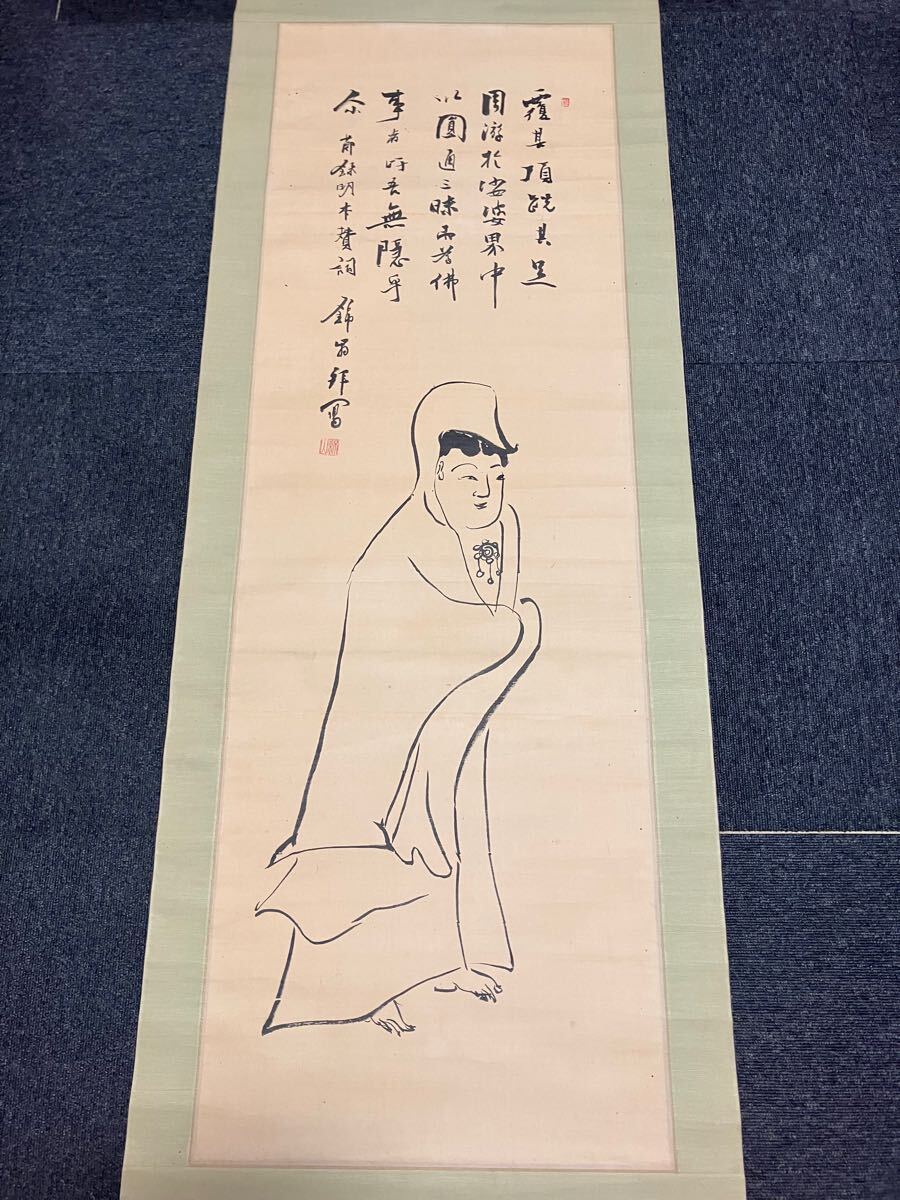 覆其頂跣其足
周游於娑婆界中
以圓通三昧而為佛
事者時吾無隱乎
尒 明本賛詞
翁拜寫